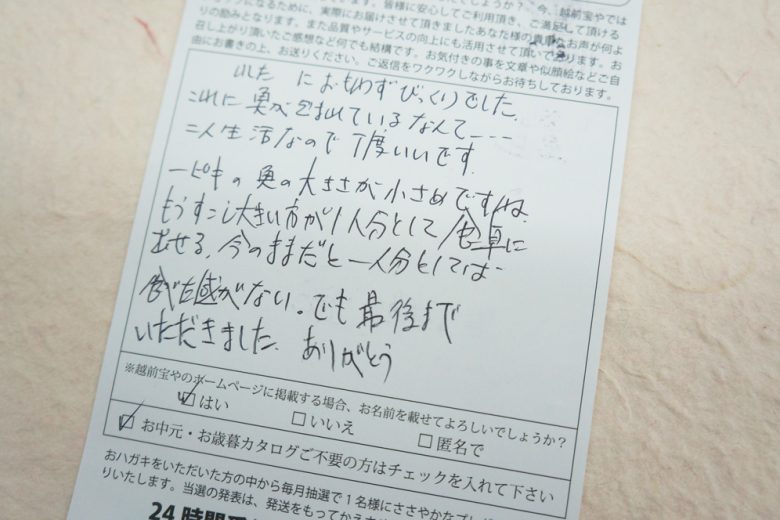 でしょうか？今、越前宝やでは
になるために、実際にお届けさせて頂きましたあなた様の貴重なお声が何よ
りの励みとなります。また品質やサービスの向上にも活用させて頂いております。お
召し上がり頂いたご感想など何でも結構です。お気付きの事を文章や似顔絵などご自
由にお書きの上、お送りください。ご返信をワクワクしながらお待ちしております。
におもわずびっくりでした。
これに魚が包まれているなんて----
二人生活なので丁度いいです。
一ピキの魚の大きさが小さめですね。
もうすこし大きい方が1人分として食卓に
出せる。今のままだと一人分としては
食べた感がない。でも最後まで
いただきました。ありがとう
※越前宝やのホームページに掲載する場合、お名前を載せてよろしいでしょうか？
☑はい □いいえ □匿名で
☑お中元・お歳暮カタログご不要の方はチェックを入れて下さい
おハガキをいただいた方の中から毎月抽選で1名様にささやかなプレ
りいたします。当選の発表は、発送をもってかえ
24時間